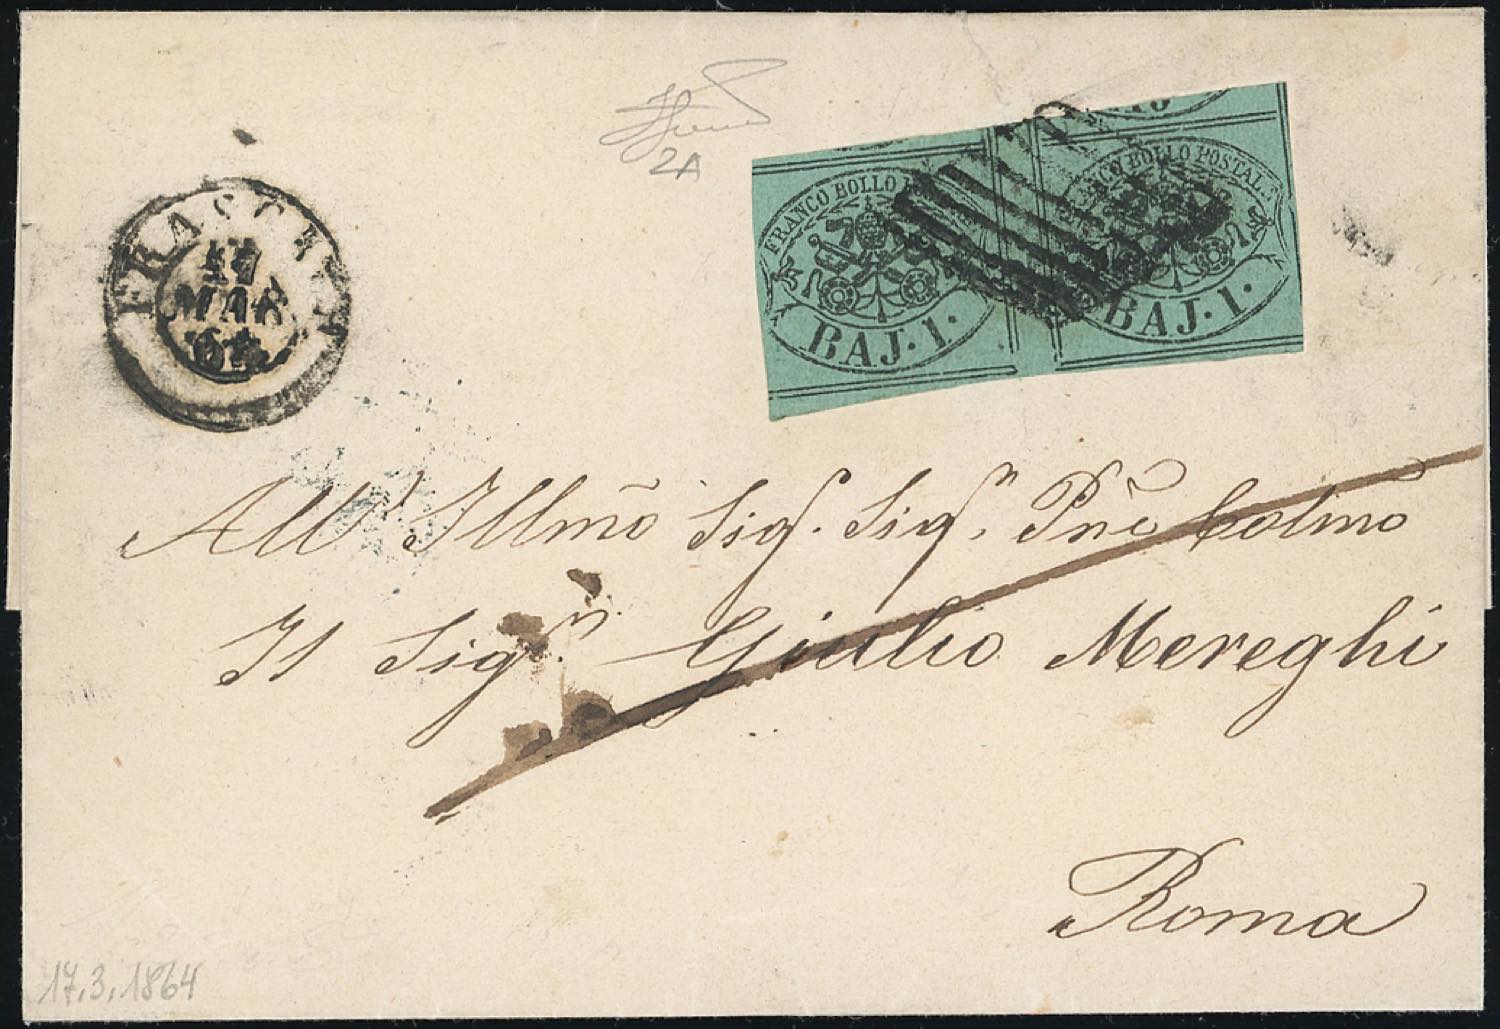 2A
FRASCATI
17
MAR
64
FRANCO BOLLO
BAJ. 1.
FRANCO BOLLO POSTALE
BAJ. 1.
All' Illmõ Sig. Sigʳ. Pnẽ Colmõ
Il Sigʳ. Giulio Mereghi
Roma
17.3.1864